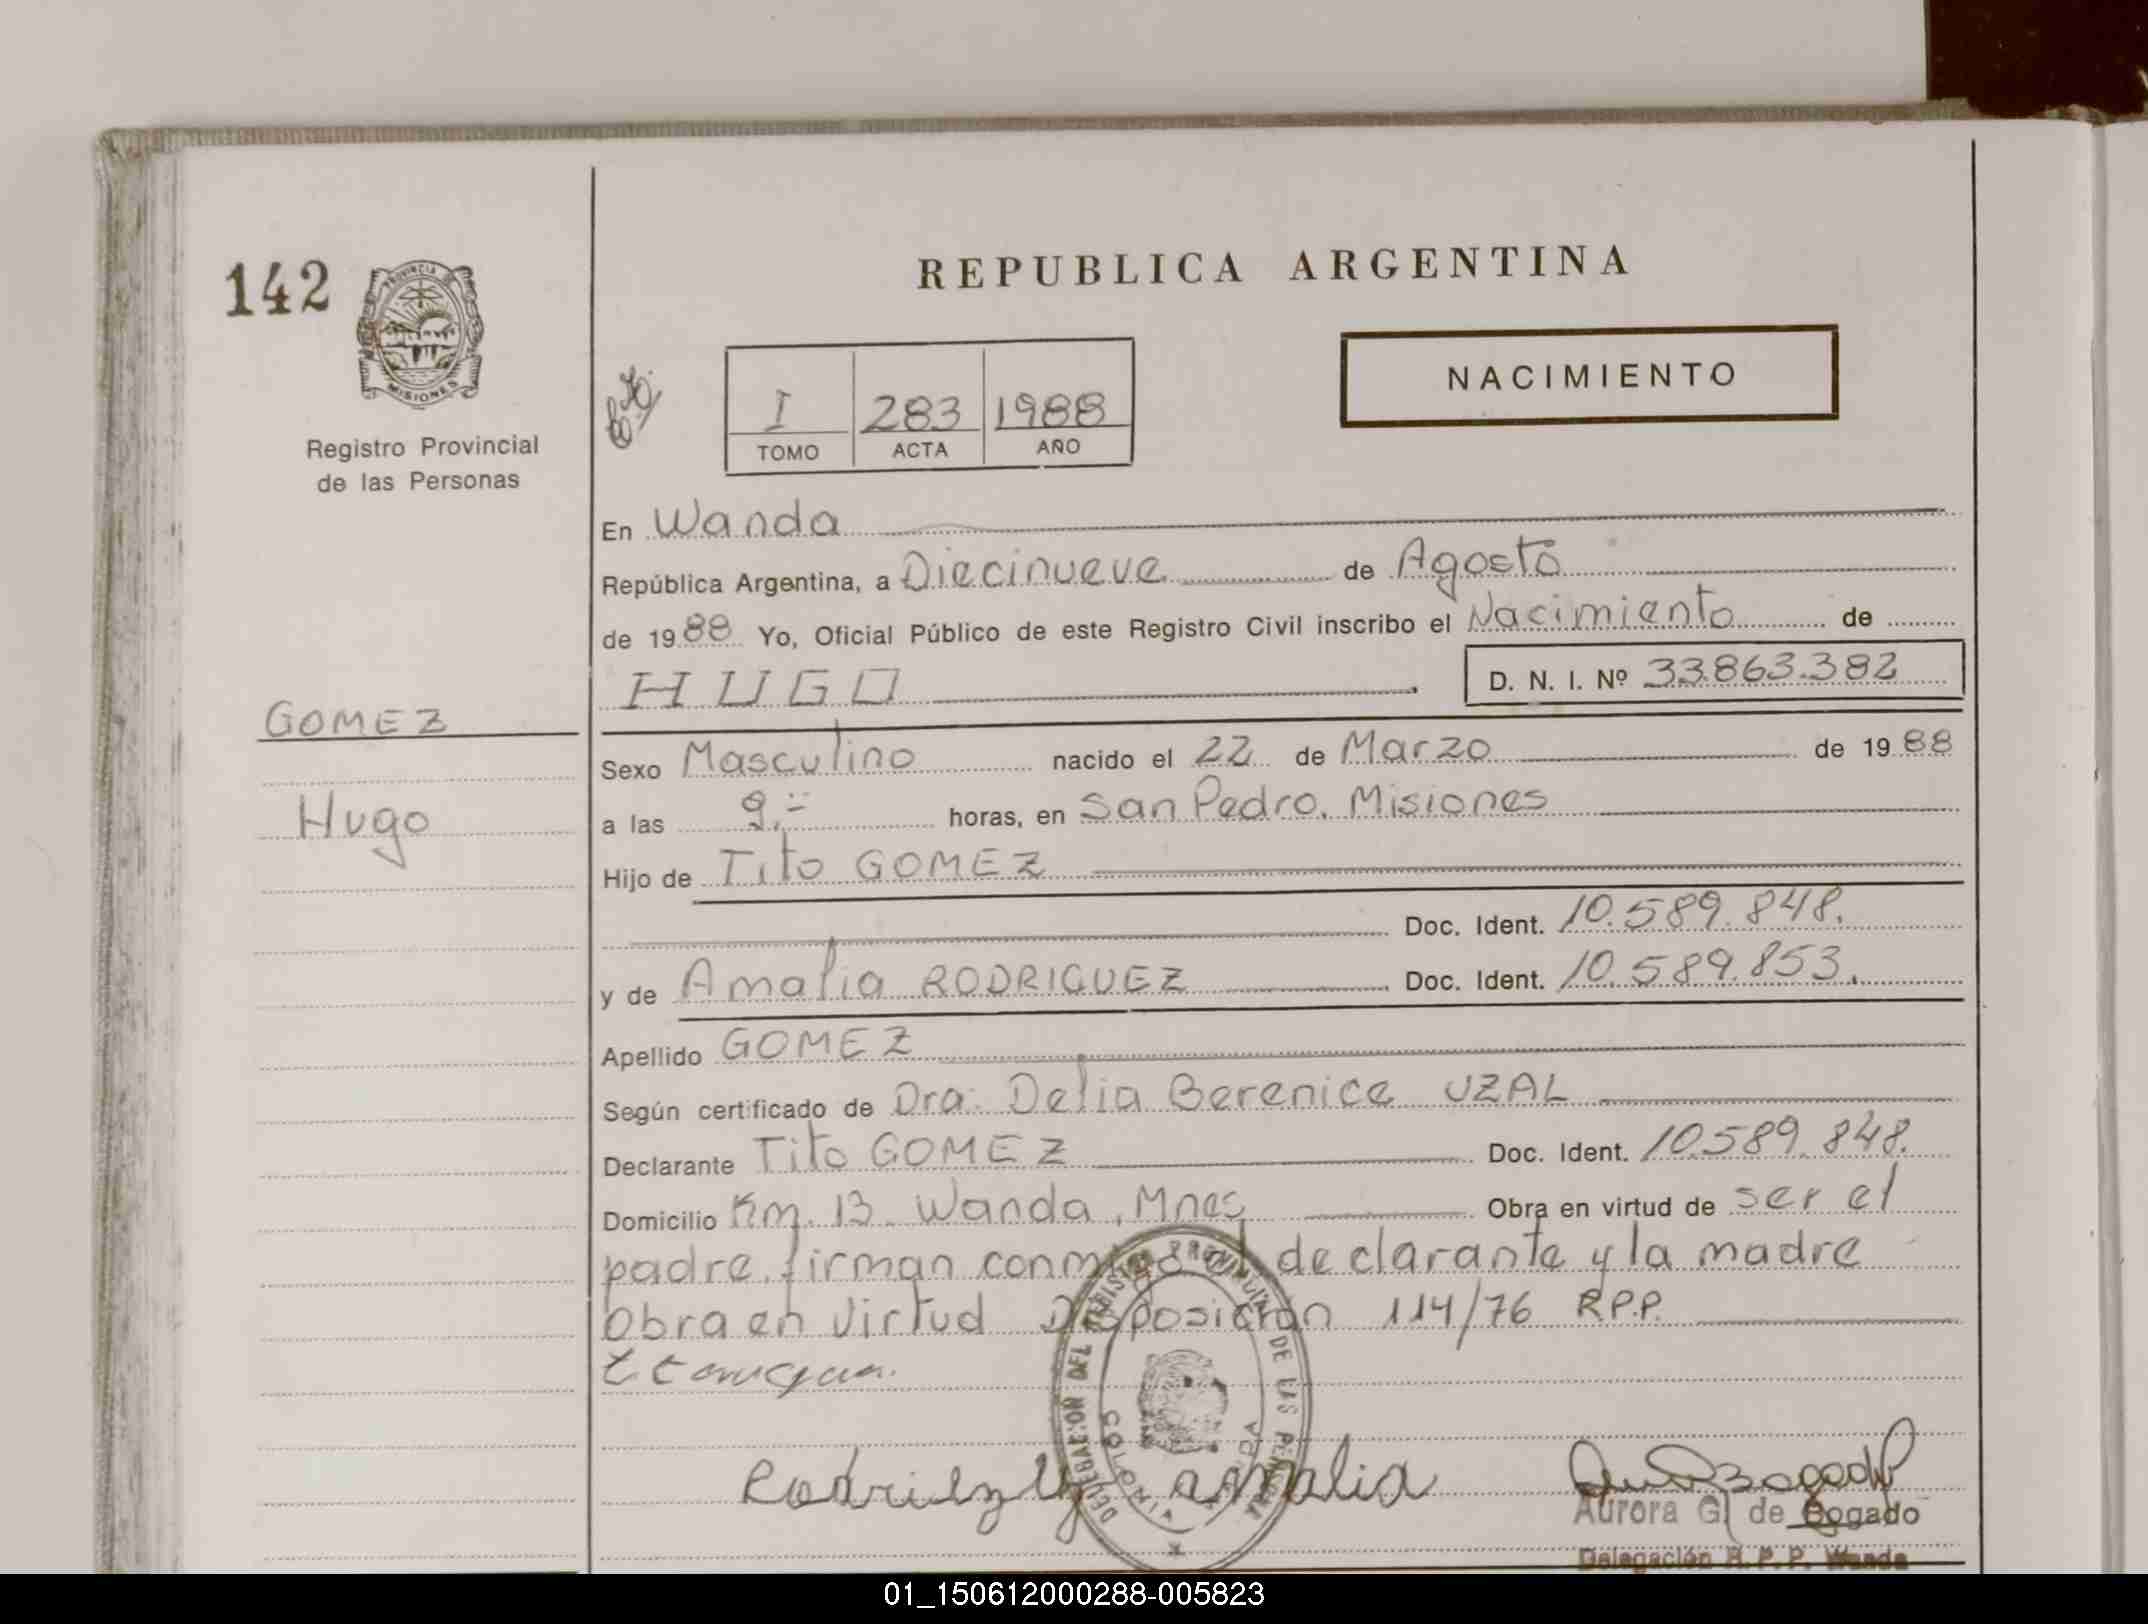 142
PROVINCIA DE
MISIONES
Registro Provincial
de las Personas
REPUBLICA ARGENTINA
NACIMIENTO
I 283 1988
TOMO ACTA AÑO
En Wanda
República Argentina, a Diecinueve de Agosto
de 1988 Yo, Oficial Público de este Registro Civil inscribo el Nacimiento de
HUGO D. N. I. Nº 33.863.382
GOMEZ
Hugo
Sexo Masculino nacido el 22 de Marzo de 1988
a las 9,= horas, en San Pedro. Misiones
Hijo de Tito GOMEZ
Doc. Ident. 10.589.848.
y de Amalia RODRIGUEZ Doc. Ident. 10.589.853.
Apellido GOMEZ
Según certificado de Dra. Delia Berenice UZAL
Declarante Tito GOMEZ Doc. Ident. 10.589.848.
Domicilio Km. 13. Wanda, Mnes Obra en virtud de ser el
padre, firman conmigo el declarante y la madre
Obra en virtud Disposición 114/76 R.P.P.
DELEGACION DEL REGISTRO PROVINCIAL DE LAS PERSONAS
amalia
Aurora G. de Bogado
Delegación R. P. P. Wanda
01_150612000288-005823